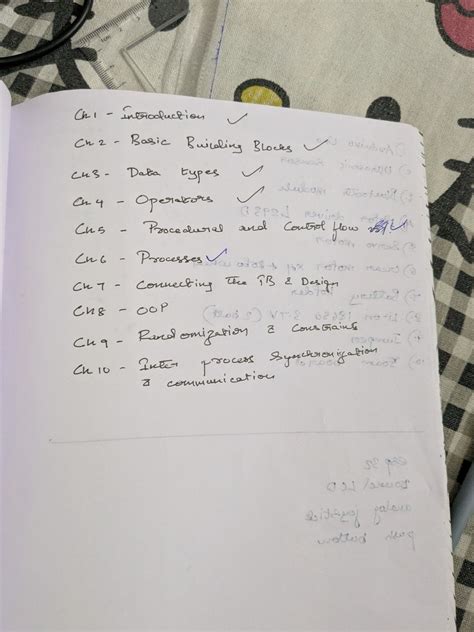 Ch.1 - Introduction ✓
Ch 2 - Basic Building Blocks ✓
Ch 3 - Data types ✓
Ch 4 - Operators ✓
Ch 5 - Procedural and Control flow ✓
Ch 6 - Processes ✓
Ch 7 - Connecting the TB & Design
Ch 8 - OOP
Ch 9 - Randomization & Constraints
Ch 10 - Inter process synchronization
& communication